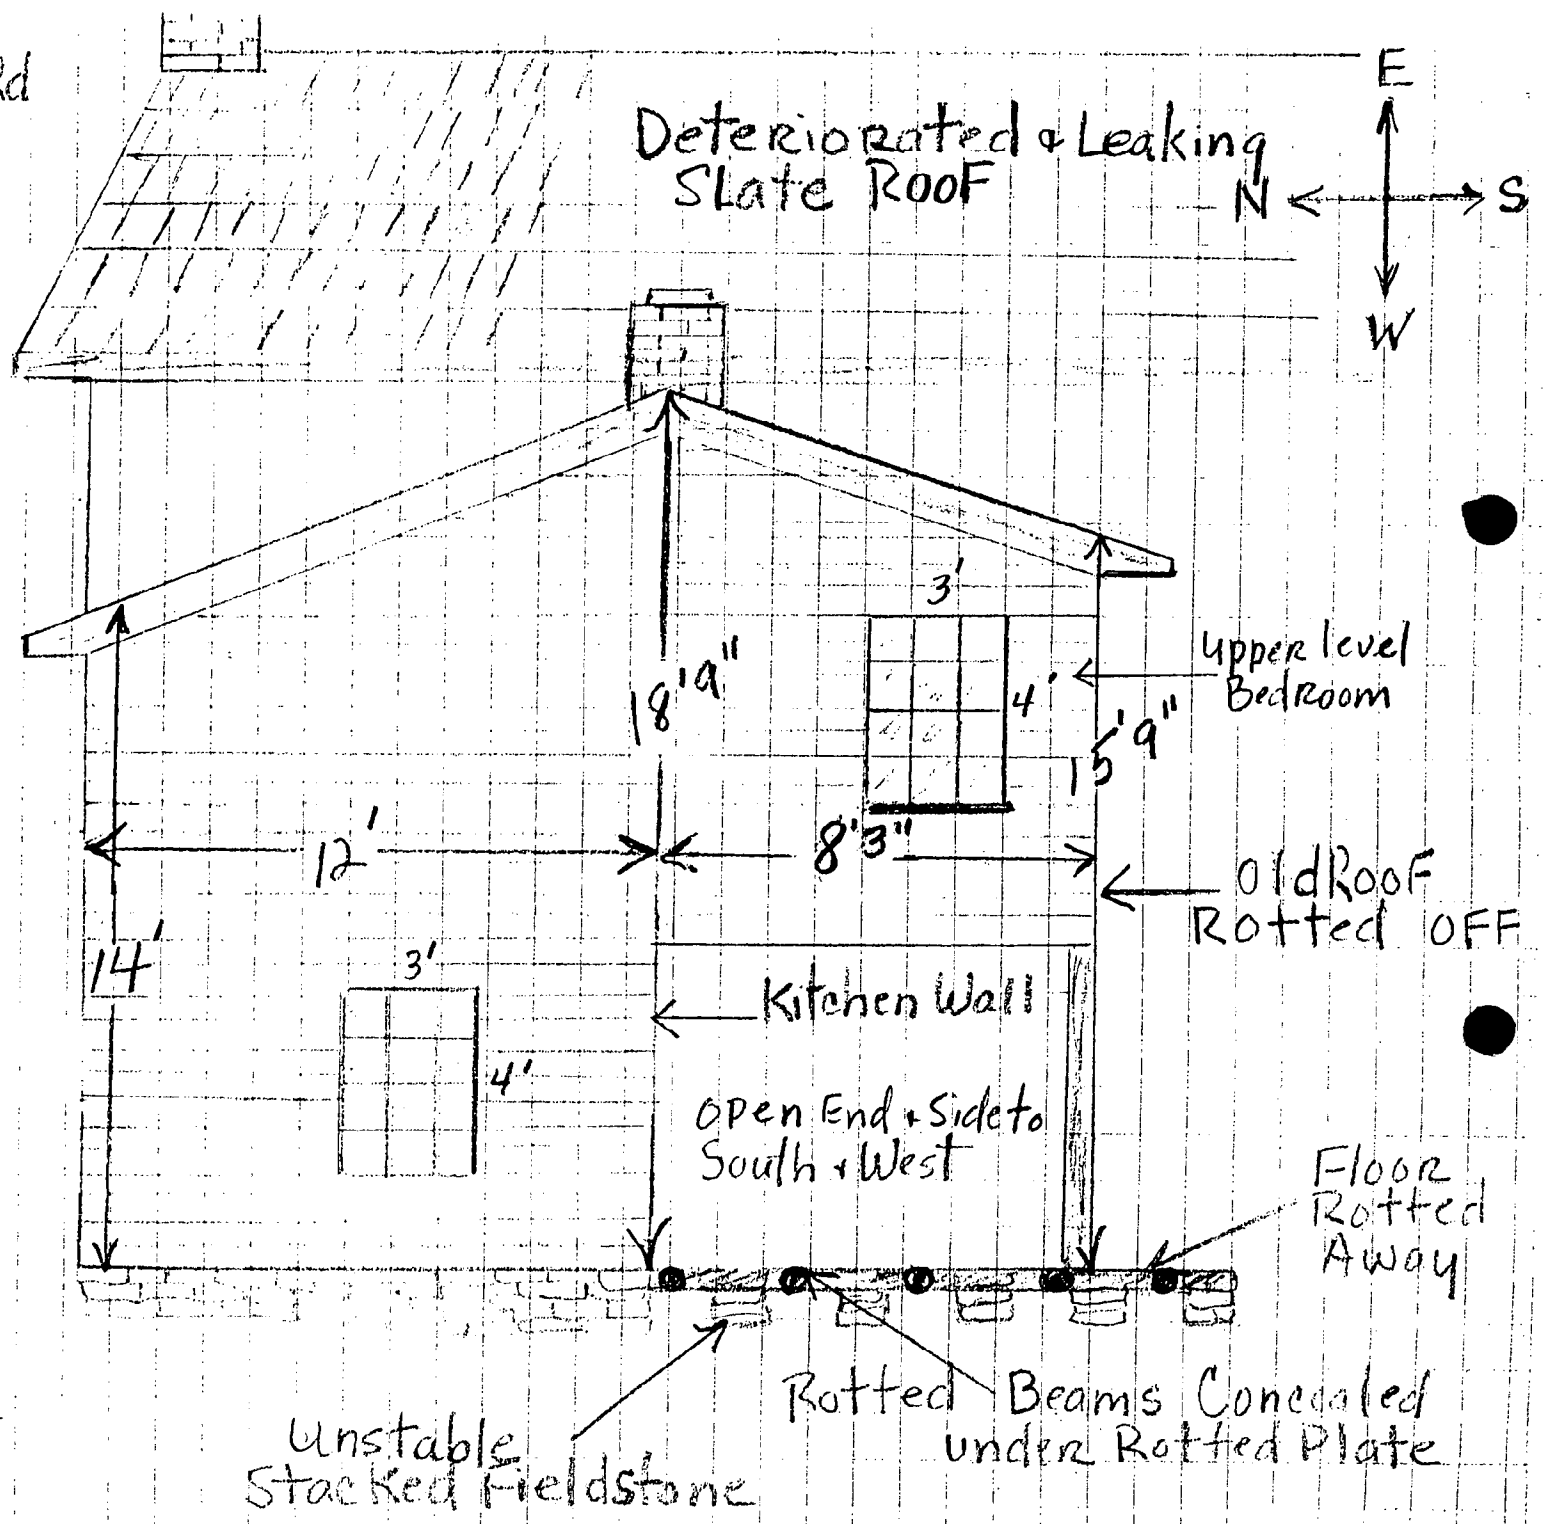 Rd
E
Deteriorated & Leaking
Slate Roof
N
S
W
3'
18'9"
4'
Upper level
Bedroom
15'9"
12'
8'3"
Old Roof
Rotted Off
14'
3'
Kitchen Wall
4'
Open End & Side to
South & West
Floor
Rotted
Away
Rotted Beams Concealed
under Rotted Plate
Unstable
Stacked Fieldstone